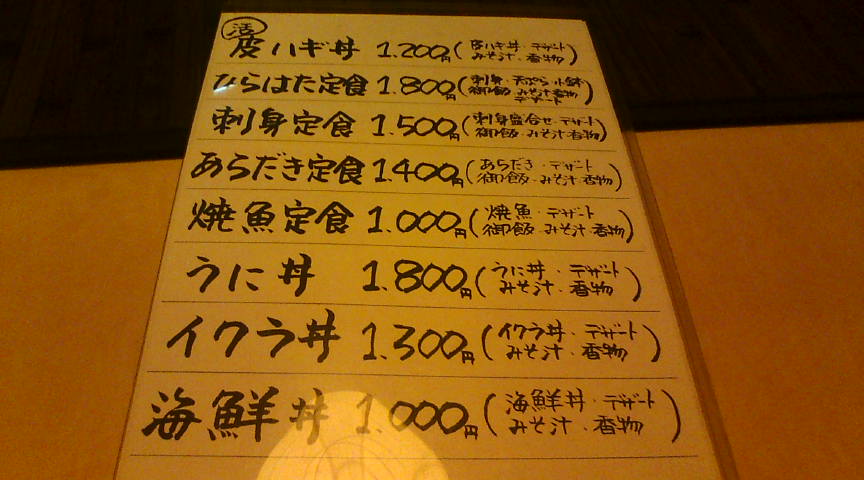 活
皮ハギ丼 1.200円(皮ハギ丼・デザート
みそ汁・香物)
ひらはた定食 1.800円(刺身・天ぷら・小鉢
御飯・みそ汁・香物
デザート)
刺身定食 1.500円(刺身盛合せ・デザート
御飯・みそ汁・香物)
あらだき定食 1.400円(あらだき・デザート
御飯・みそ汁・香物)
焼魚定食 1.000円(焼魚・デザート
御飯・みそ汁・香物)
うに丼 1.800円(うに丼・デザート
みそ汁・香物)
イクラ丼 1.300円(イクラ丼・デザート
みそ汁・香物)
海鮮丼 1.000円(海鮮丼・デザート
みそ汁・香物)